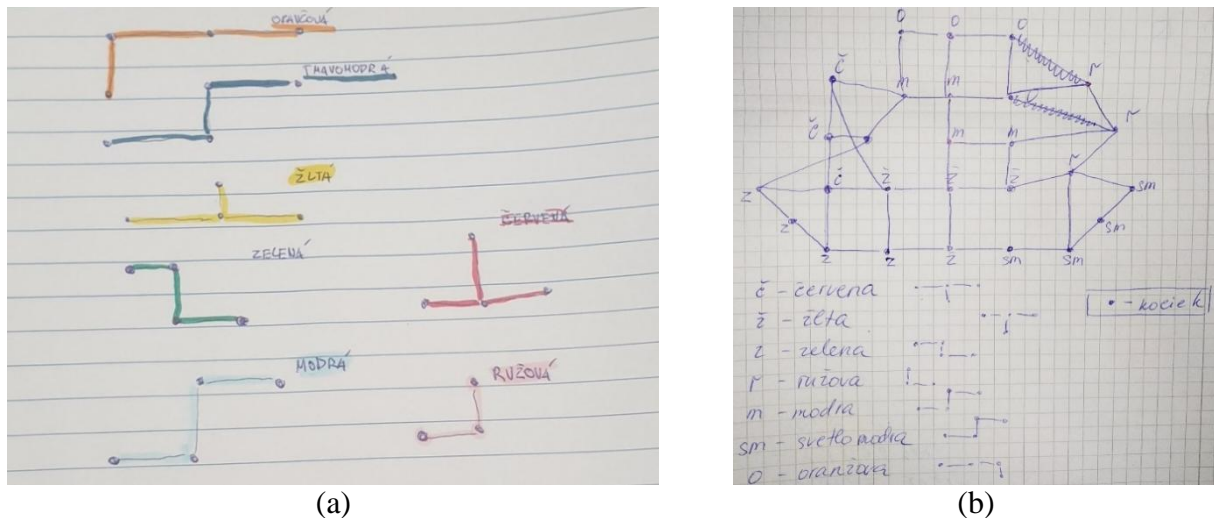 ORANŽOVÁ
TMAVOMODRÁ
ŽLTÁ
ČERVENÁ
ZELENÁ
MODRÁ
RUŽOVÁ
(a)
O O O
č r
m m
r
č m m
ž ž ž r
z č sm
z sm
z z z sm sm
č - červena
ž - žlta
z - zelena
r - ružova
m - modra
sm - svetlomodra
O - oranžova
• - kociek
(b)